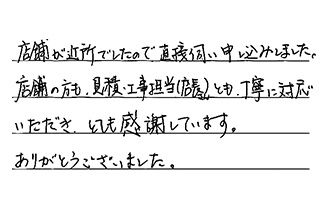 店舗が近所でしたので直接伺い申し込みしました。
店舗の方も、見積・工事担当(店長)とも、丁寧に対応
いただき、とても感謝しています。
ありがとうございました。